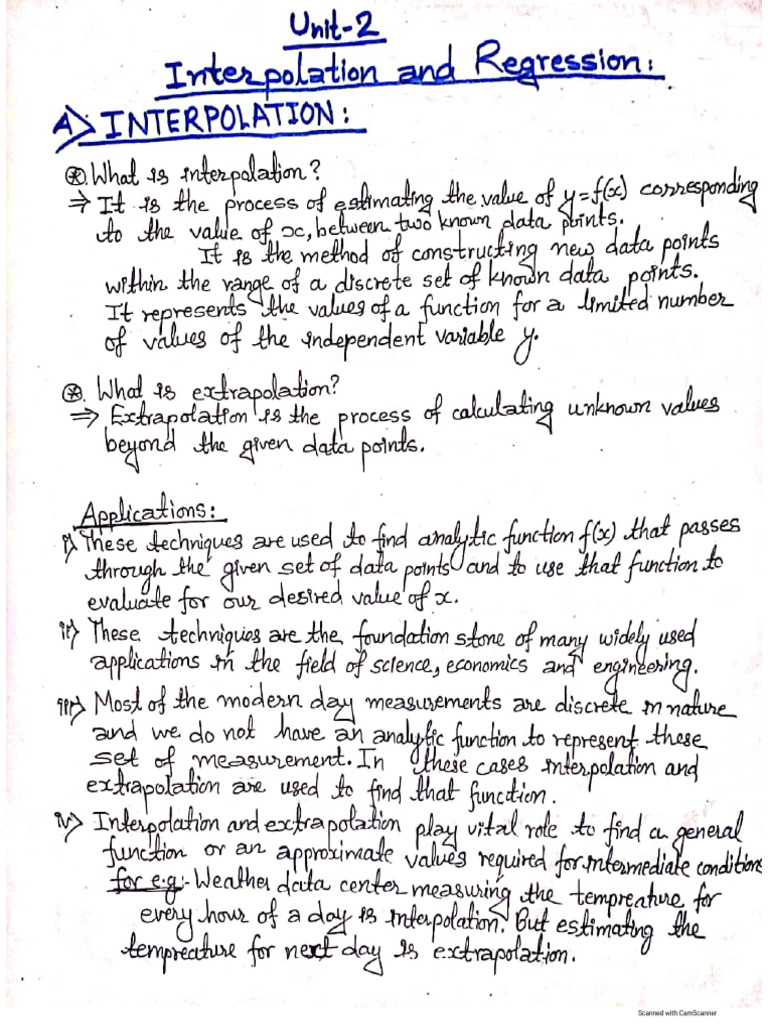 Unit-2
Interpolation and Regression:
A> INTERPOLATION:
⊛ What is interpolation?
⇒ It is the process of estimating the value of y=f(x) corresponding
to the value of x, between two known data points.
It is the method of constructing new data points
within the range of a discrete set of known data points.
It represents the values of a function for a limited number
of values of the independent variable y.
⊛. What is extrapolation?
⇒ Extrapolation is the process of calculating unknown values
beyond the given data points.
Applications:
i> These techniques are used to find analytic function f(x) that passes
through the given set of data points and to use that function to
evaluate for our desired value of x.
ii> These techniques are the foundation stone of many widely used
applications in the field of science, economics and engineering.
iii> Most of the modern day measurements are discrete in nature
and we do not have an analytic function to represent these
set of measurement. In these cases interpolation and
extrapolation are used to find that function.
iv> Interpolation and extrapolation play vital role to find a general
function or an approximate values required for intermediate conditions
for e.g:- Weather data center measuring the tempreature for
every hour of a day is interpolation. But estimating the
tempreature for next day is extrapolation.
Scanned with CamScanner